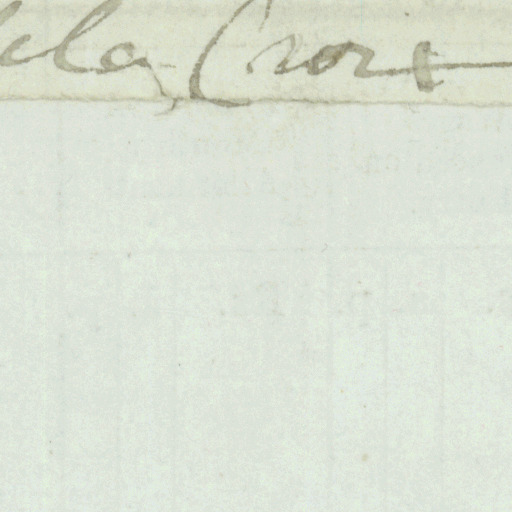 de la Croix